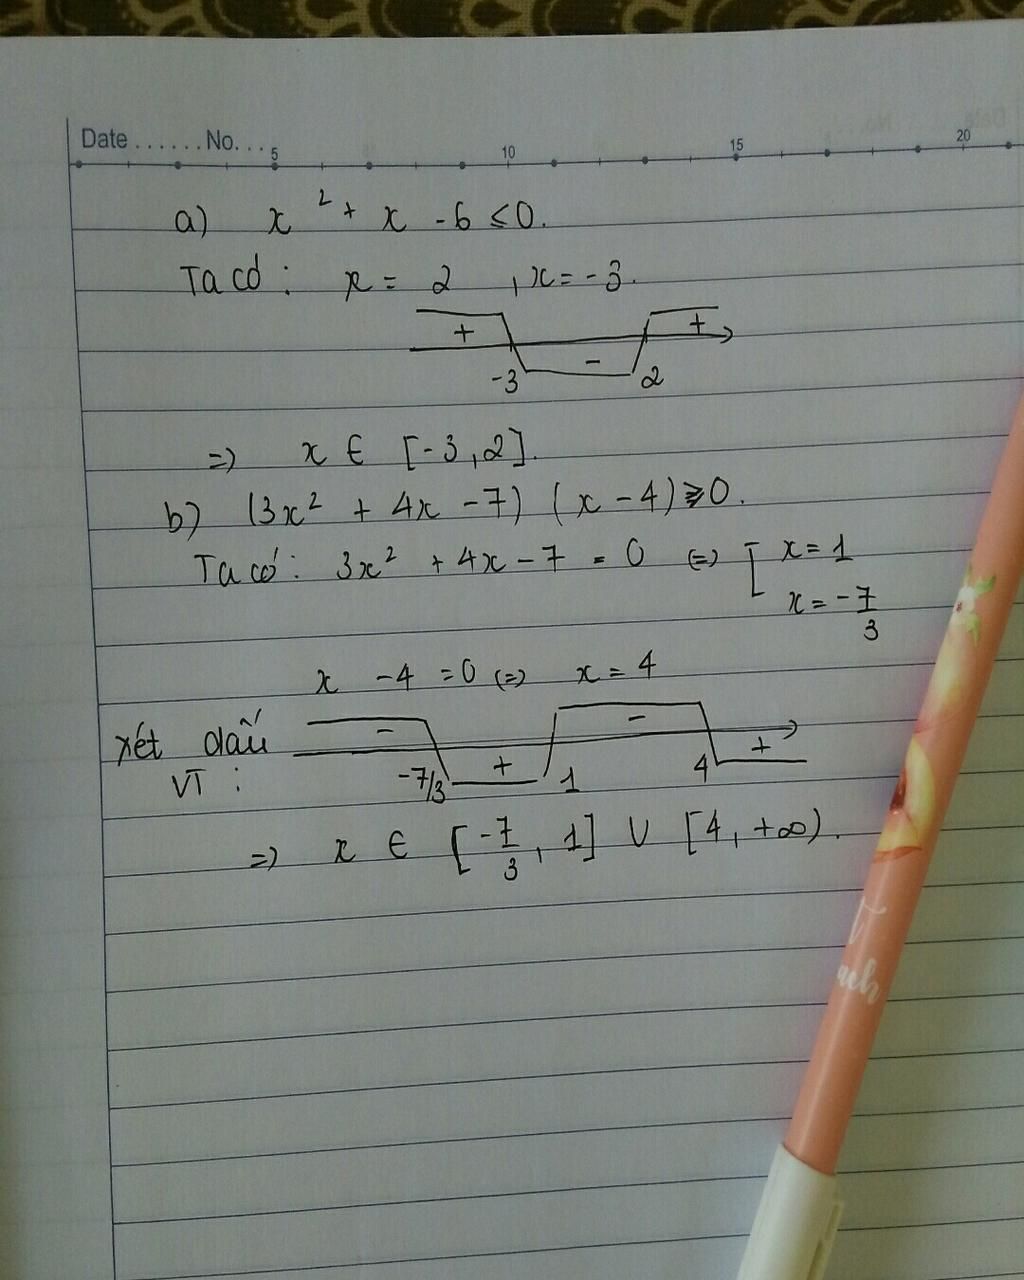 Date ...... No. ...
5 10 15 20
a) x² + x - 6 ≤ 0.
Ta có : x = 2 , x = -3.
+ - +
-3 2
=> x ∈ [-3 , 2].
b) (3x² + 4x - 7) (x - 4) ≥ 0.
Ta có : 3x² + 4x - 7 = 0 <=> [ x = 1
x = -7/3
x - 4 = 0 <=> x = 4
Xét dấu
- + - +
VT : -7/3 1 4
=> x ∈ [-7/3 , 1] ∪ [4 , +∞).